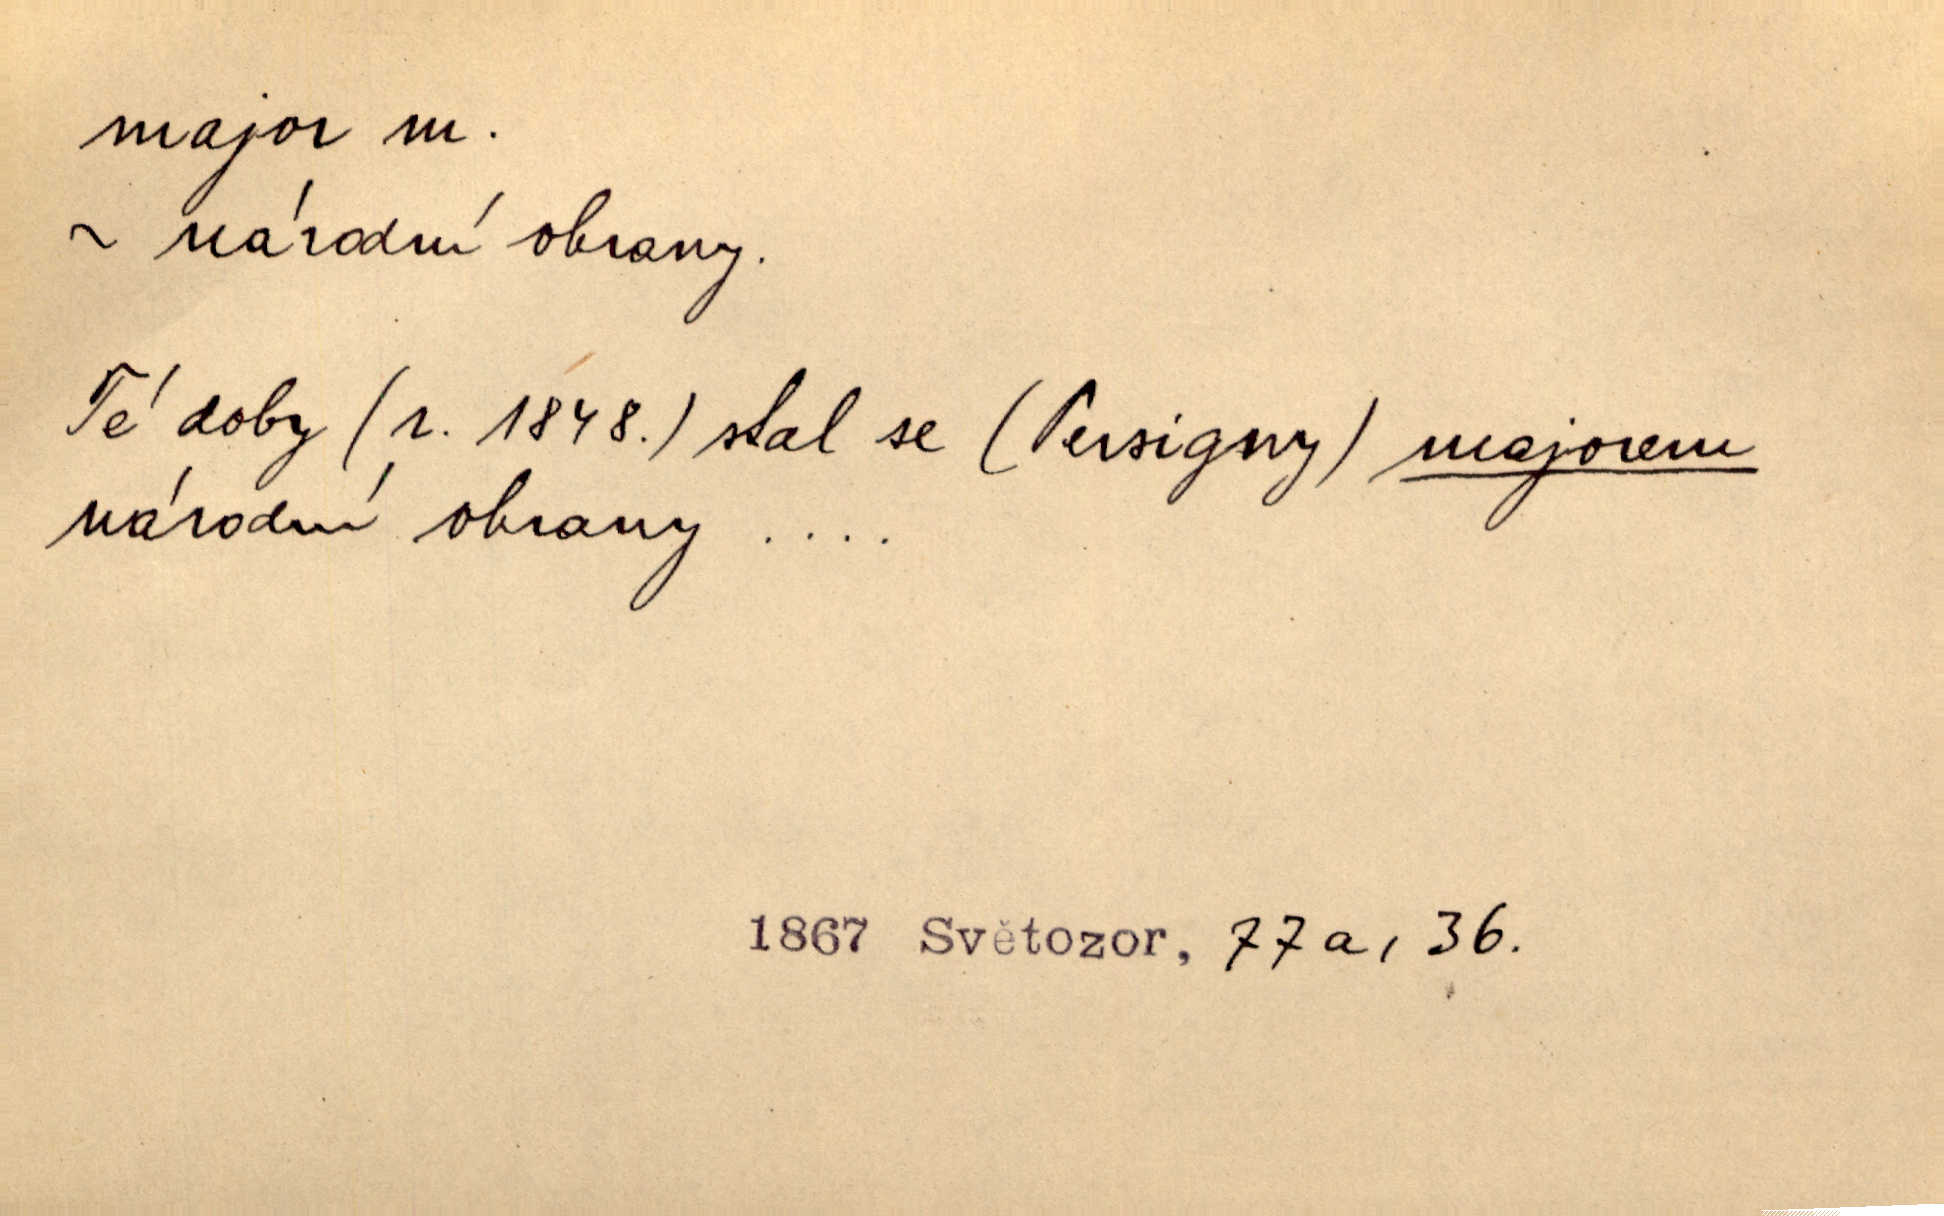 major m.
~ národní obrany.
Té doby (r. 1848.) stal se (Persigny) majorem
národní obrany ....
1867 Světozor, 77a, 36.